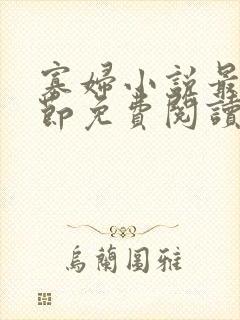 寡婦小説最
節免費閱讀
烏蘭圖雅